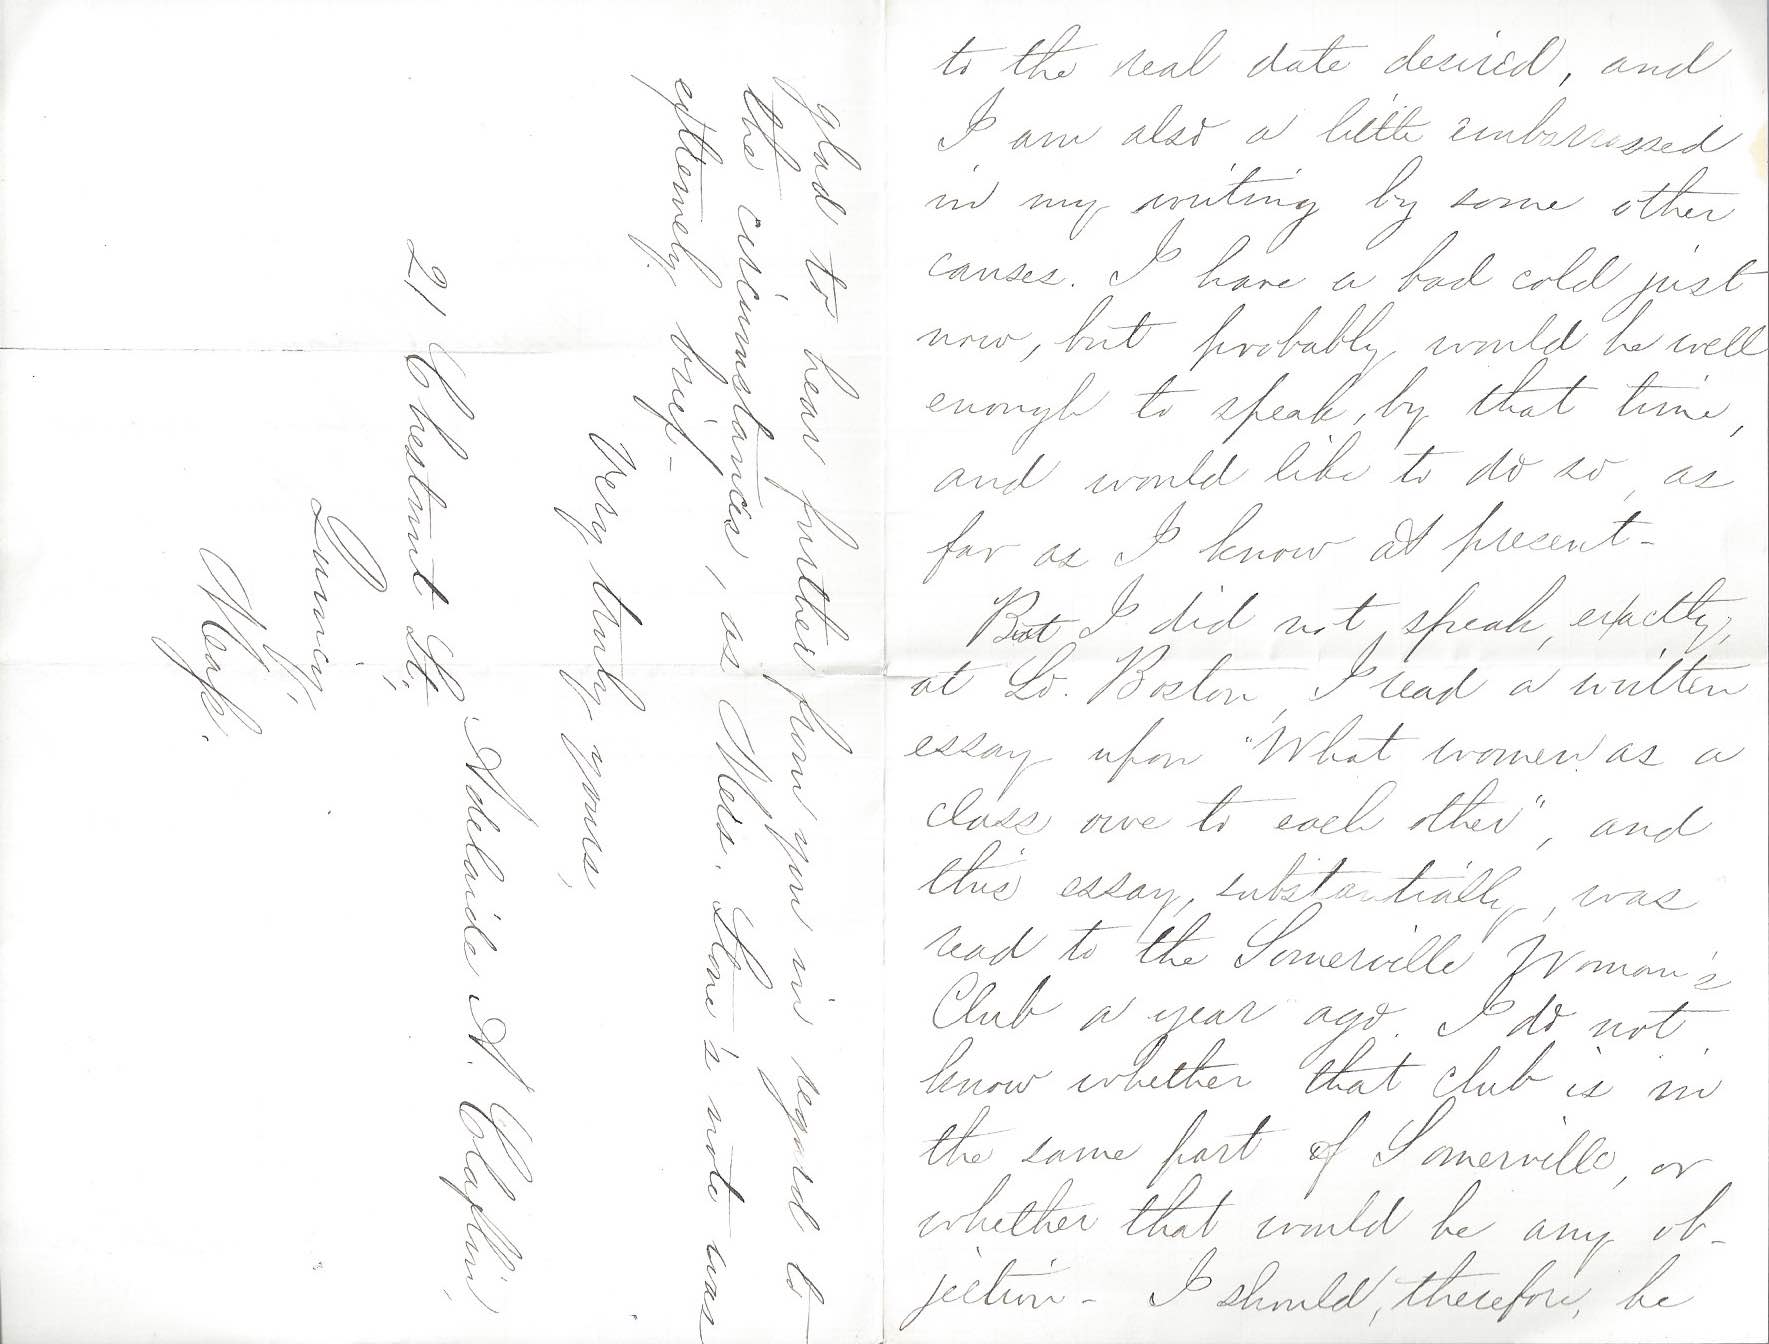 to the real date desired, and
I am also a little embarrassed
in my writing by some other
causes. I have a bad cold just
now, but probably would be well
enough to speak, by that time,
and would like to do so, as
far as I know at present -
But I did not speak, exactly,
at So. Boston, I read a written
essay upon "What women as a
class owe to each other", and
this essay, substantially, was
read to the Somerville Woman's
Club a year ago. I do not
know whether that club is in
the same part of Somerville, or
whether that would be any ob-
jection - I should, therefore, be
glad to hear further from you in regard to
the circumstances, as Mrs. Stone's note was
extremely brief -
Very truly yours,
Adelaide A. Claflin,
21 Chestnut St.,
Quincy,
Mass.